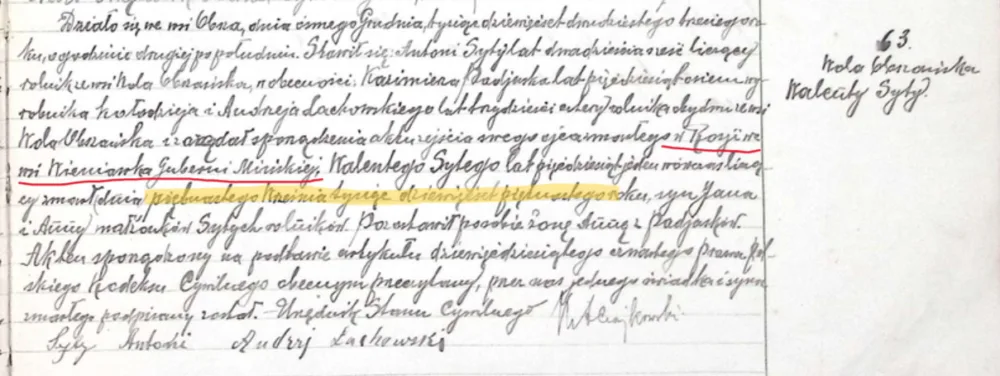 Działo się we wsi Obsza, dnia ósmego Grudnia, tysiąc dziewięćset dwudziestego trzeciego ro-
ku, o godzinie drugiej po południu. Stawił się: Antoni Syty lat dwadzieścia sześć liczący
rolnik ze wsi Wola Obszańska, w obecności: Kazimierza Padjaska lat pięćdziesiąt osiem
rolnika kołodzieja i Andrzeja Lachowskiego lat trzydzieści cztery rolnika obydwu ze wsi
Wola Obszańska i zażądał sporządzenia aktu zejścia swego ojca zmarłego w Rosji we
wsi Wieniawka Guberni Mińskiej, Walentego Sytego lat pięćdziesiąt jeden wówczas liczą-
cy zmarł dnia piętnastego Września tysiąc dziewięćset piętnastego roku, syn Jana
i Anny małżonków Sytych rolników. Pozostawił po sobie żonę Annę z Padjasków.
Akt ten sporządzony na podstawie artykułu dziewięćdziesiątego czwartego prawa Pol-
skiego Kodeksu Cywilnego obecnym przeczytany, przez nas jednego świadka i syna
zmarłego podpisany został. Urzędnik Stanu Cywilnego
Syty Antoni Andrzej Lachowski
63.
Wola Obszańska
Walenty Syty.